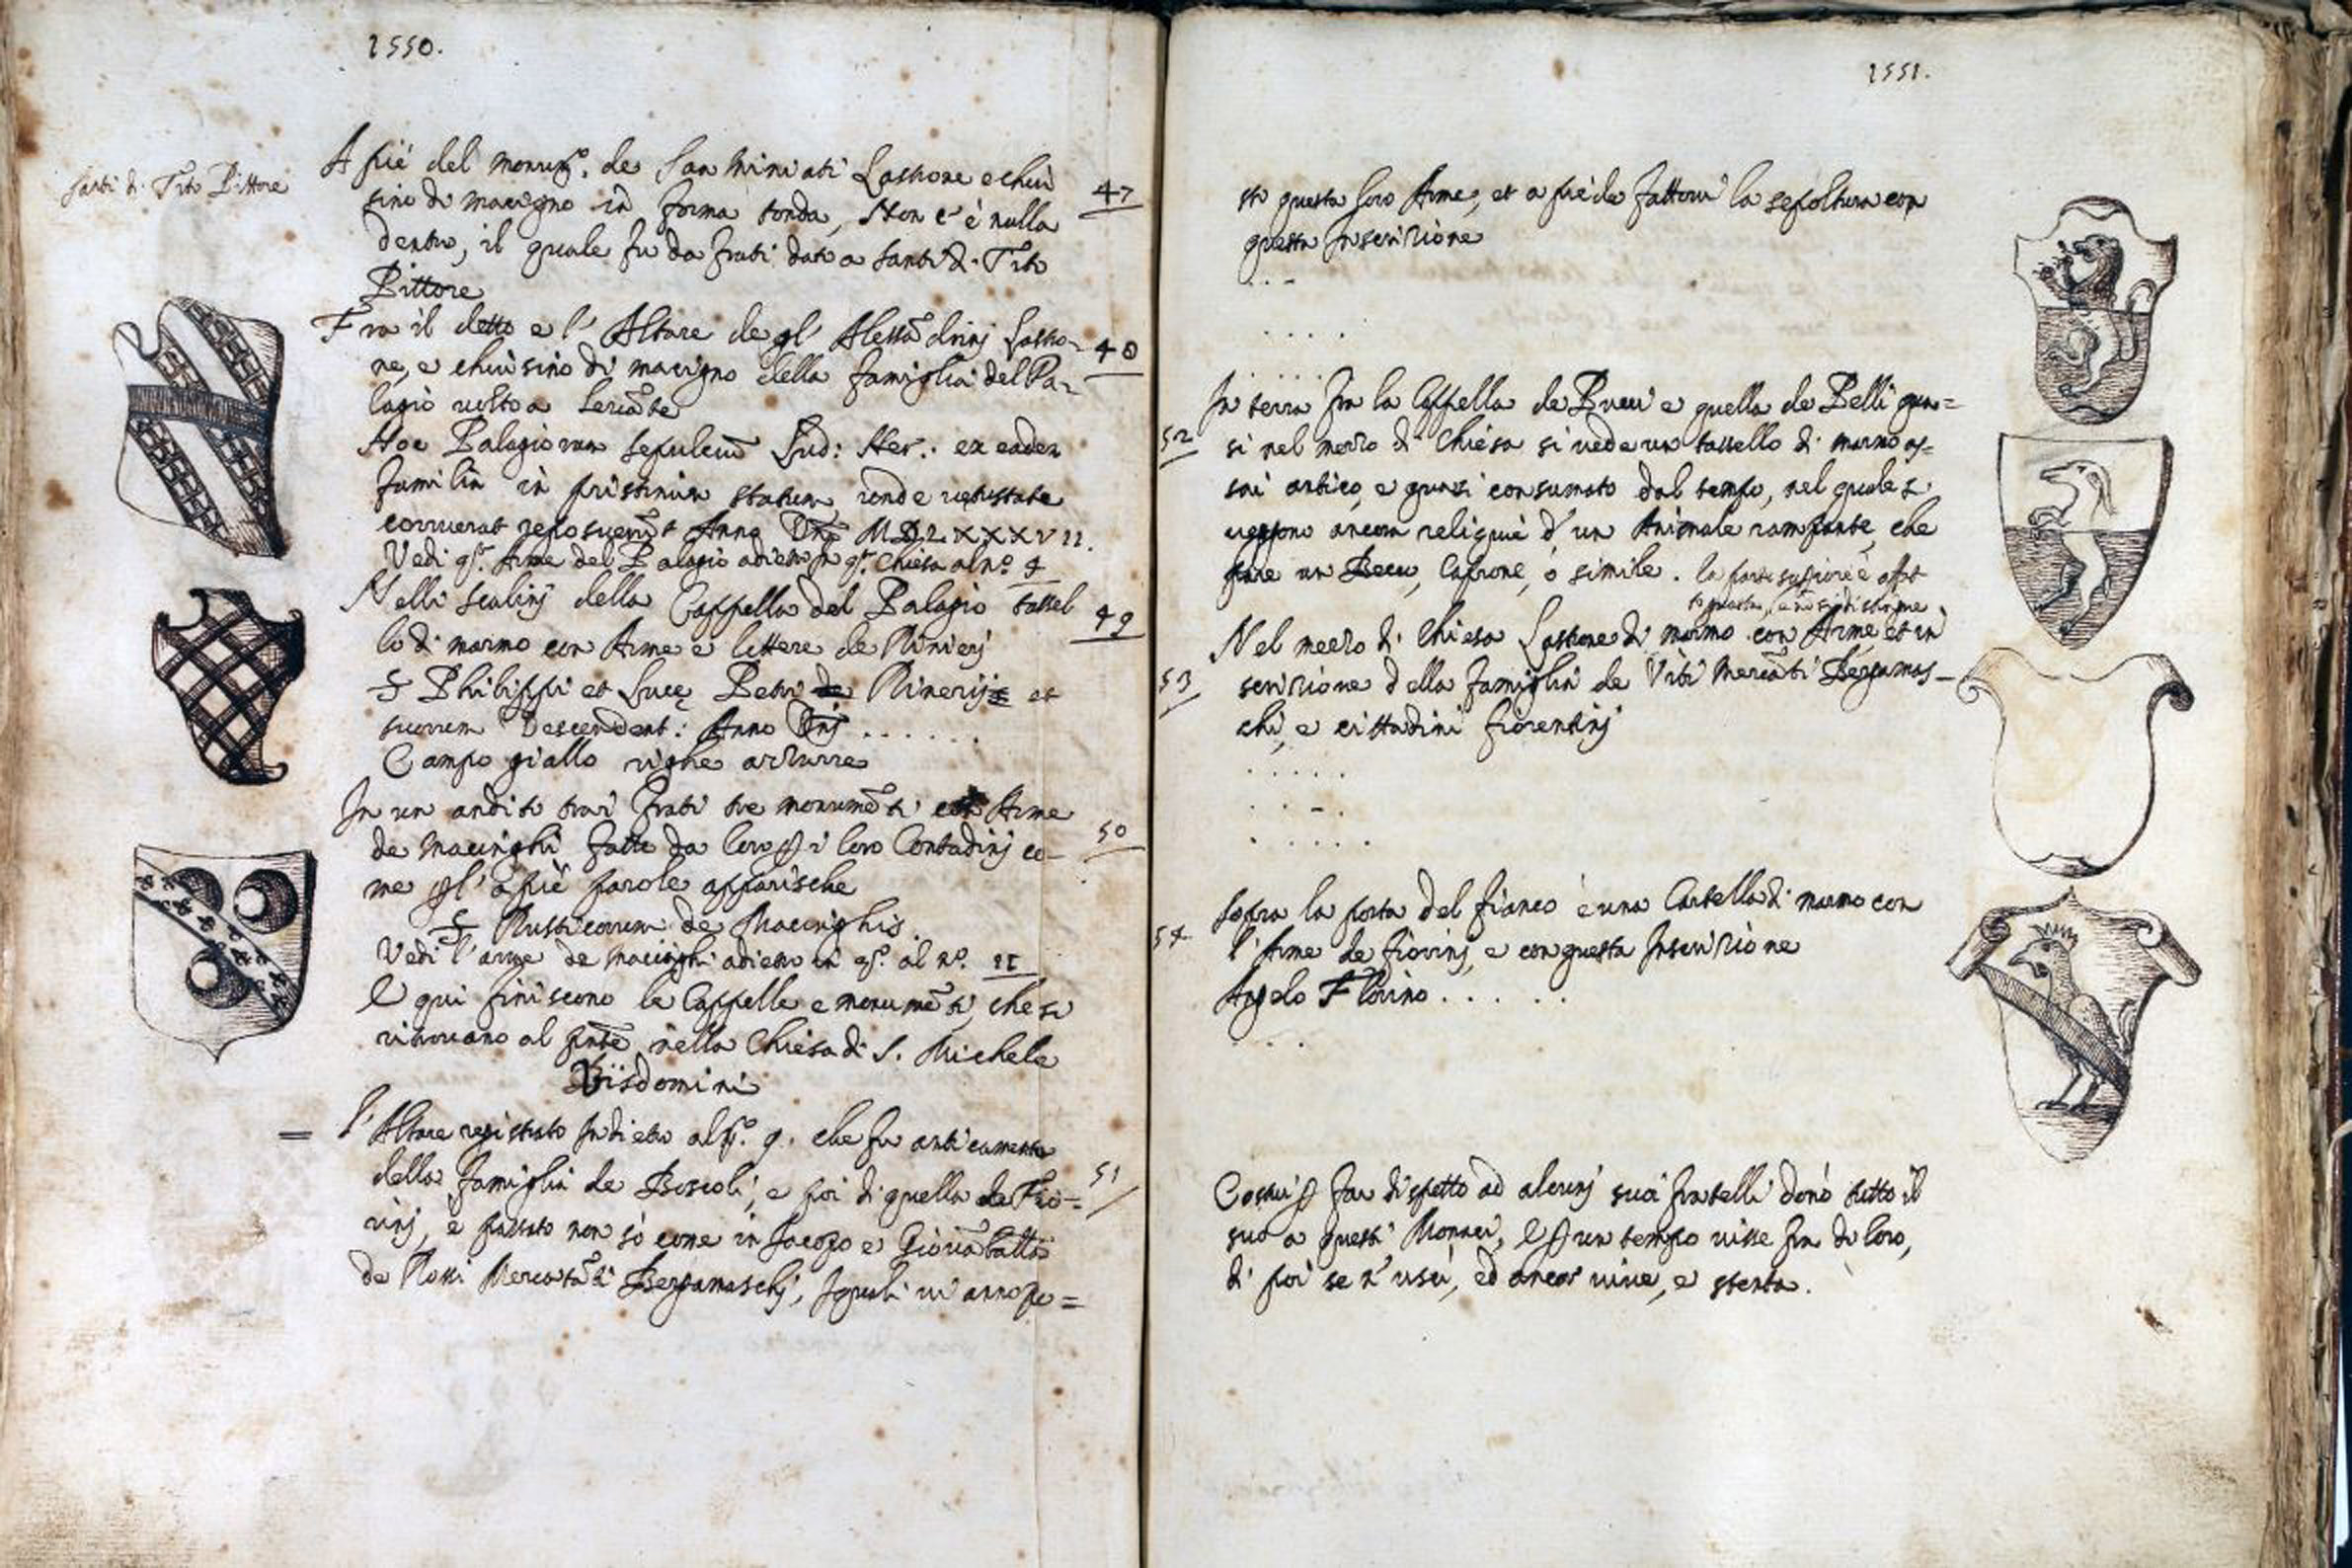 1550.
Santi di Tito Pittore
A piè del monum.to de San Miniati Lastrone e chiu
sino di macigno in forma tonda, Non c'è nulla
47
dentro, il quale fu da frati dato a Santi di Tito
Pittore
Fra il detto e l'Altare degl'Alessãdrinj Lastro-
48
ne, e chiusino di macigno della famiglia del Pa-
lagio volto a Levãte
Hoc Palagiorum sepulcrũ Lud: Her: ex eadem
familia in pristinum statum, unde vetustate
corruerat reposuerũt Anno Dñi MDLXXXVII.
Vedi q.a Arme del Palagio adietro in q.a Chiesa al n.o 4
Nelli scalinj della Cappella del Palagio tassel
49
lo di marmo con Arme e lettere de Rinierj
S Philippi et Lucę Petri de Rinerijs et
suorum Descendent: Anno Dñj . . . . . .
Campo giallo righe azzurre
In un andito trai frati tre monumẽti con Arme
50
de Macinghi fatte da loro p i loro Contadinj co-
me gl'apiè parole apparische
S Rusticorum de Macinghis.
Vedi l'arme de Macinghi adietro in q.a al n.o 11
E qui finiscono le Cappelle e monumẽti, che si
ritrovano al pñte nella Chiesa di S. Michele
Visdomini
L'Altare registrato Indietro al n.o 9. che fu anticamente
51
della famiglia de Boscoli, e poi di quella de Fio=
rinj, è passato non sò come in Jacopo e Giovãbattã
de Rossi Mercatãti Bergamaschj, Iquali vi anno po=
1551.
sto questa loro Arme, et a piè de fattovi la sepoltura con
questa Inscrizione
. . -
. . . .
. . . . .
In terra fra la Cappella de Bucci e quella de Pelli qua=
52
si nel mezzo di Chiesa si vede un tassello di marmo as=
sai antico, e quasi consumato dal tempo, nel quale si
veggono ancora reliquie d'un Animale rampante, che
pare un Becco, Caprone, ò simile. la parte superiore è
Nel mezzo di Chiesa Lastrone di marmo con Arme et in
53
scrizione della famiglia de Mercãti Bergamas-
chi, e cittadini fiorentinj
. . . . .
. . - .
. . . . .
Sopra la porta del fianco è una Cartella di marmo con
54
l'Arme de fiorinj, e con questa Inscrizione
Angelo Florino . . . . .
. . .
Costui p far dispetto ad alcunj suoi fratelli donò tutto il
suo a questi Monaci, e p un tempo visse fra di loro,
di poi se n'uscì, ed ancor vive, e stenta.